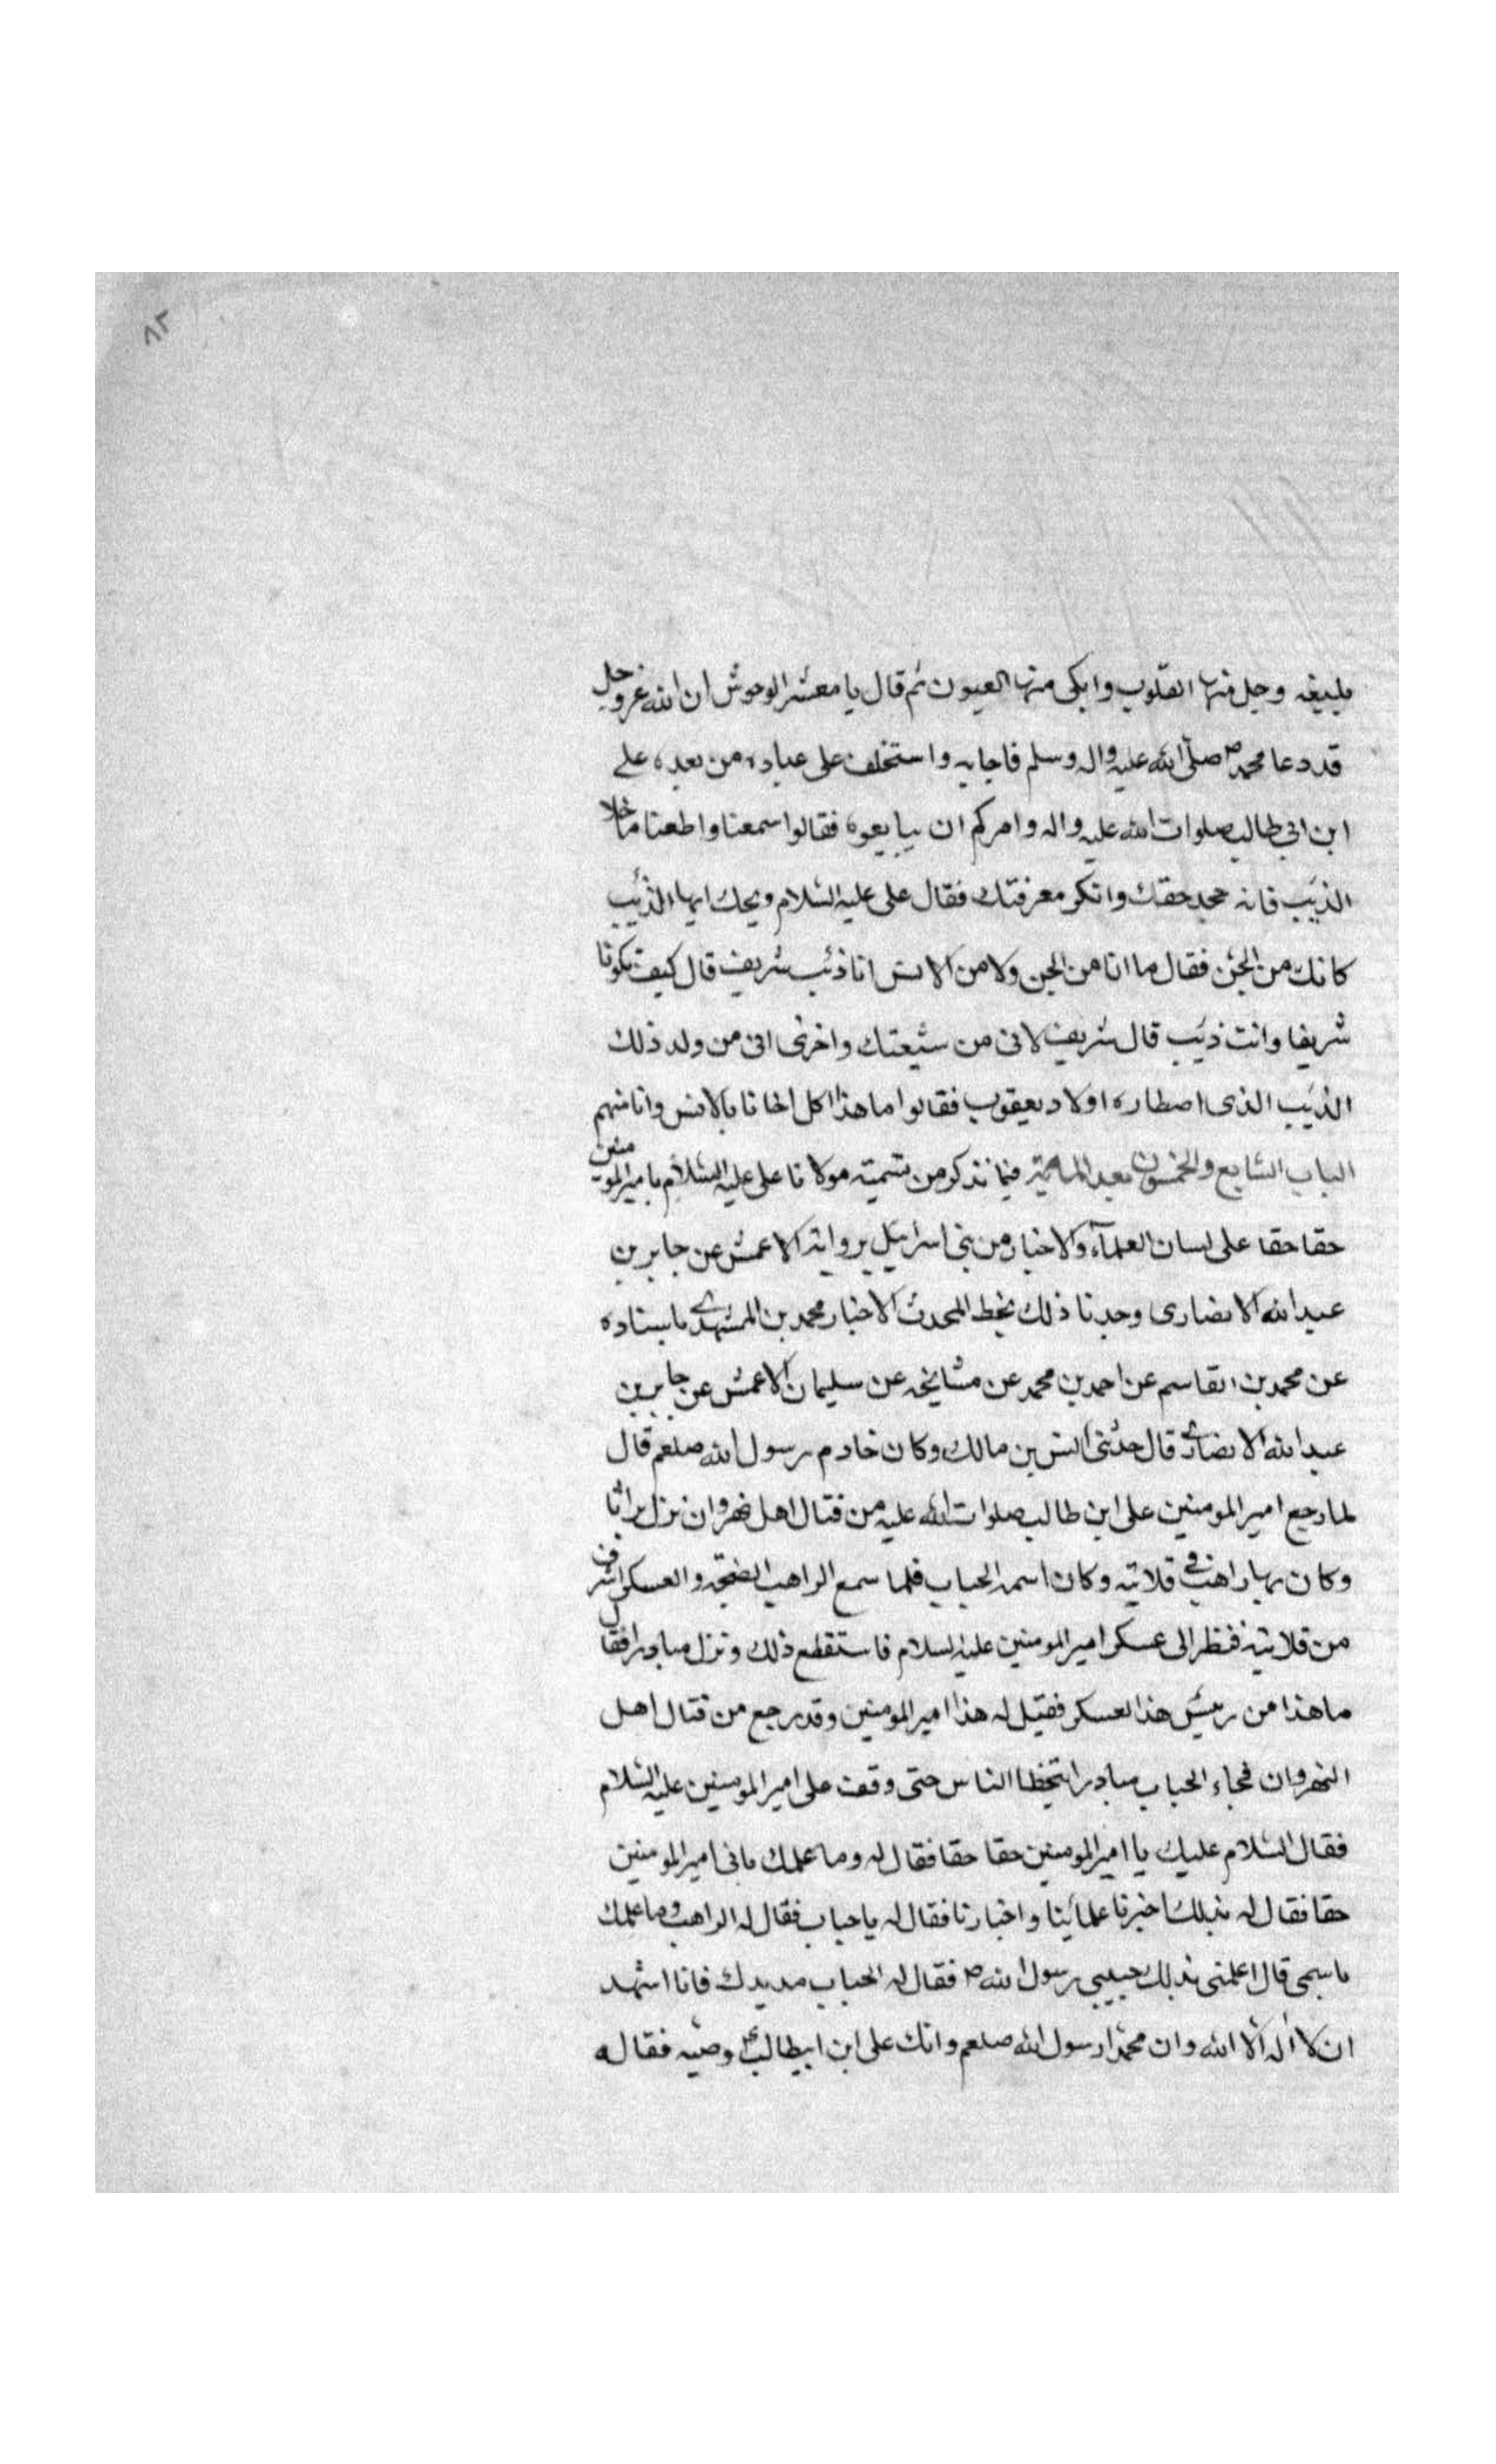 ٨٢
بليغه وجل منها القلوب وابكى منها العيون ثم قال يا معشر الوحوش ان الله عز وجل
قد دعا محمد ص صلى الله عليه واله وسلم فاجابه واستخلف على عباده من بعده على
ابن ابى طالب صلوات الله عليه واله وامركم ان يبايعوه فقالوا سمعنا واطعنا ما خلا
الذيب فانه جحد حقك وانكر معرفتك فقال على عليه السلام ويحك ايها الذئب
كانك من الجن فقال ما انا من الجن ولا من الانس انا ذئب شريف قال كيف تكونا
شريفا وانت ذيب قال شريف لانى من شيعتك واخرى انى من ولد ذلك
الذيب الذى اصطاره اولاد يعقوب فقالوا ما هذا اكل اخانا بالامس وانا منهم
الباب السابع والخمسون بعد المائة فيما نذكر من تسمية مولانا على عليه السلام باميرالمومنين
حقا حقا على لسان العلمآء والاخبار من بنى اسرائيل برواية الاعمش عن جابر بن
عبدالله الانصارى وجدنا ذلك بخط المحدث الاخبار محمد بن المشهدى باسناده
عن محمد بن القاسم عن احمد بن محمد عن مشايخه عن سليمان الاعمش عن جابر بن
عبدالله الانصارى قال حدثنى انس بن مالك وكان خادم رسول الله صلعم قال
لما رجع اميرالمومنين على ابن طالب صلوات الله عليه من قتال اهل نهروان نزل براثا
وكان بها راهب فى قلاتيه وكان اسمه الحباب فلما سمع الراهب الضجة والعسكر اشرف
من قلاتيه فنظر الى عسكر اميرالمومنين عليه السلام فاستقطع ذلك ونزل مبادرا فقال
ما هذا من رئيس هذا العسكر فقيل له هذا اميرالمومنين وقد رجع من قتال اهل
النهروان فجاء الحباب مبادرا يتخطا الناس حتى وقف على اميرالمومنين عليه السلام
فقال السلام عليك يا اميرالمومنين حقا حقا فقال له وما علمك بانى اميرالمومنين
حقا فقال له بذلك اخبرنا علمائنا واخبارنا فقال له يا حباب فقال له الراهب وما علمك
باسمى قال اعلمنى بذلك حبيبى رسول الله ص فقال له الحباب مد يدك فانا اشهد
ان لا اله الا الله وان محمدا رسول الله صلعم وانك على ابن ابيطالب ع وصيه فقال له